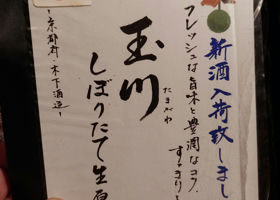 新酒入荷致しまし
フレッシュな旨味と豊潤なコク、
するまり!
玉川
たまがわ
しぼりたて生原
-京都府・木下酒造-